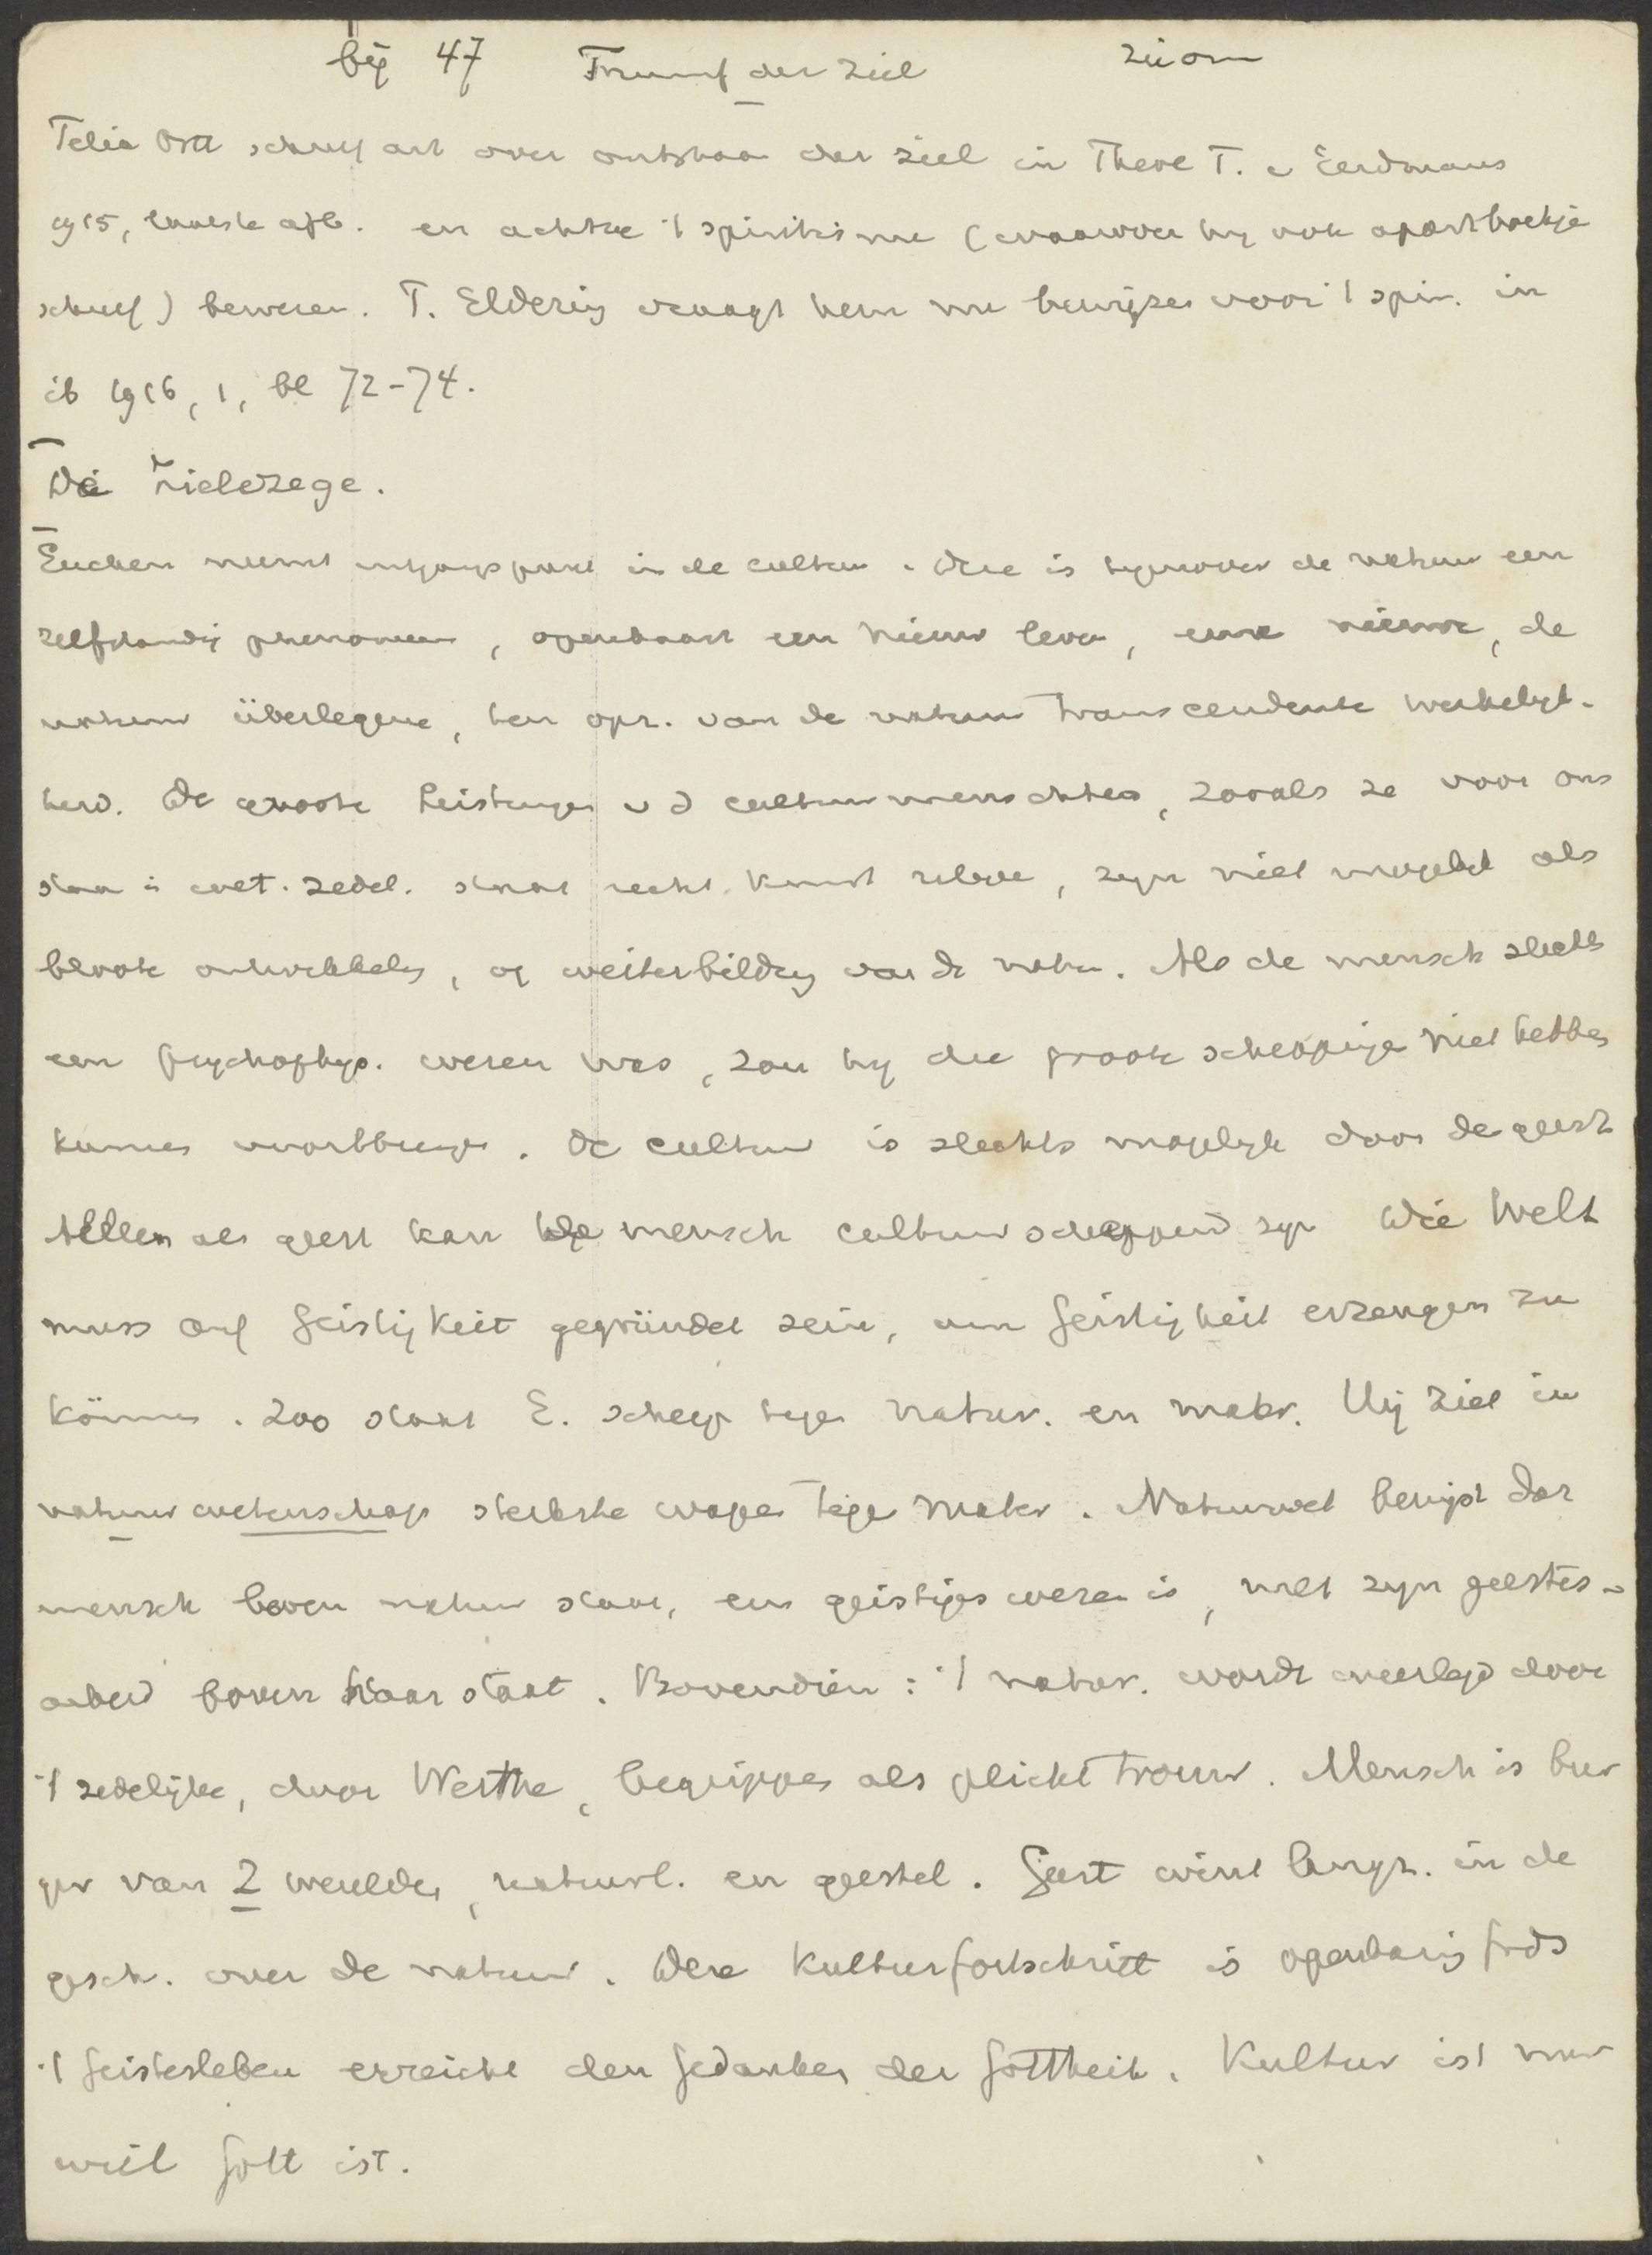 bij 47 Triumf der ziel zie om
Felix Ortt schreef art over ontstaan der ziel in Theol T. v Eerdmans
1915, laatste afl. en achtte 't spiritisme (waarover hij ook apart boekje
schreef) bewezen. T. Eldering vraagt hem nu bewijzen voor 't spir. in
ib 1916, 1, bl 72-74.
De Zielezege.
Eucken neemt uitgangspunt in de cultuur. Deze is tegenover de natuur een
zelfstandig phenomeen, openbaart een nieuw leven, eene nieuwe, de
natuur überlegene, ten opz. van de natuur transcendente werkelijk-
heid. De groote Leistungen v d cultuurmenschheid, zooals ze voor ons
staan in wet. zedel. staat recht kunst religie, zijn niet mogelijk als
bloote ontwikkeling, of weiterbildung van de natuur. Als de mensch slechts
een psychophys. wezen was, zou hij die groote scheppingen niet hebben
kunnen voortbrengen. De cultuur is slechts mogelijk door de geest
Alleen als geest kan de mensch cultuurscheppend zijn Die Welt
muss auf Geistigkeit gegründet sein, um Geistigkeit erzeugen zu
können. Zoo staat E. scherp tegen natur. en mater. Hij ziet in
natuurwetenschap sterkste wapen tegen mater. Natuurwet bewijst dat
mensch boven natuur staat, een geistiges wezen is, met zijn geestes-
arbeid boven haar staat. Bovendien: 't natur. wordt weerlegd door
't zedelijke, door Werthe, begrippen als plicht trouw. Mensch is bur
ger van 2 werelden, natuurl. en geestel. Geest wint langz. in de
gesch. over de natuur. Deze Kulturfortschritt is openbaring Gods
't Geistesleben erreicht den Gedanken der Gottheit. Kultur ist nur
weil Gott ist.